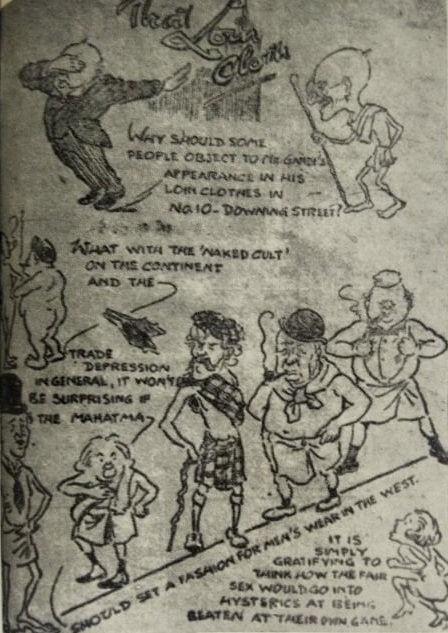 That
Loin
Cloth
WHY SHOULD SOME
PEOPLE OBJECT TO MR. GANDI'S
APPEARANCE IN HIS
LOIN CLOTHES IN
NO.10 - DOWNING STREET?
WHAT WITH THE 'NAKED CULT'
ON THE CONTINENT
AND THE
TRADE
DEPRESSION
IN GENERAL, IT WON'T
BE SURPRISING IF
THE MAHATMA
SHOULD SET A FASHION FOR MEN'S WEAR IN THE WEST.
IT IS
SIMPLY
GRATIFYING TO
THINK HOW THE FAIR
SEX WOULD GO INTO
HYSTERICS AT BEING
BEATEN AT THEIR OWN GAME.